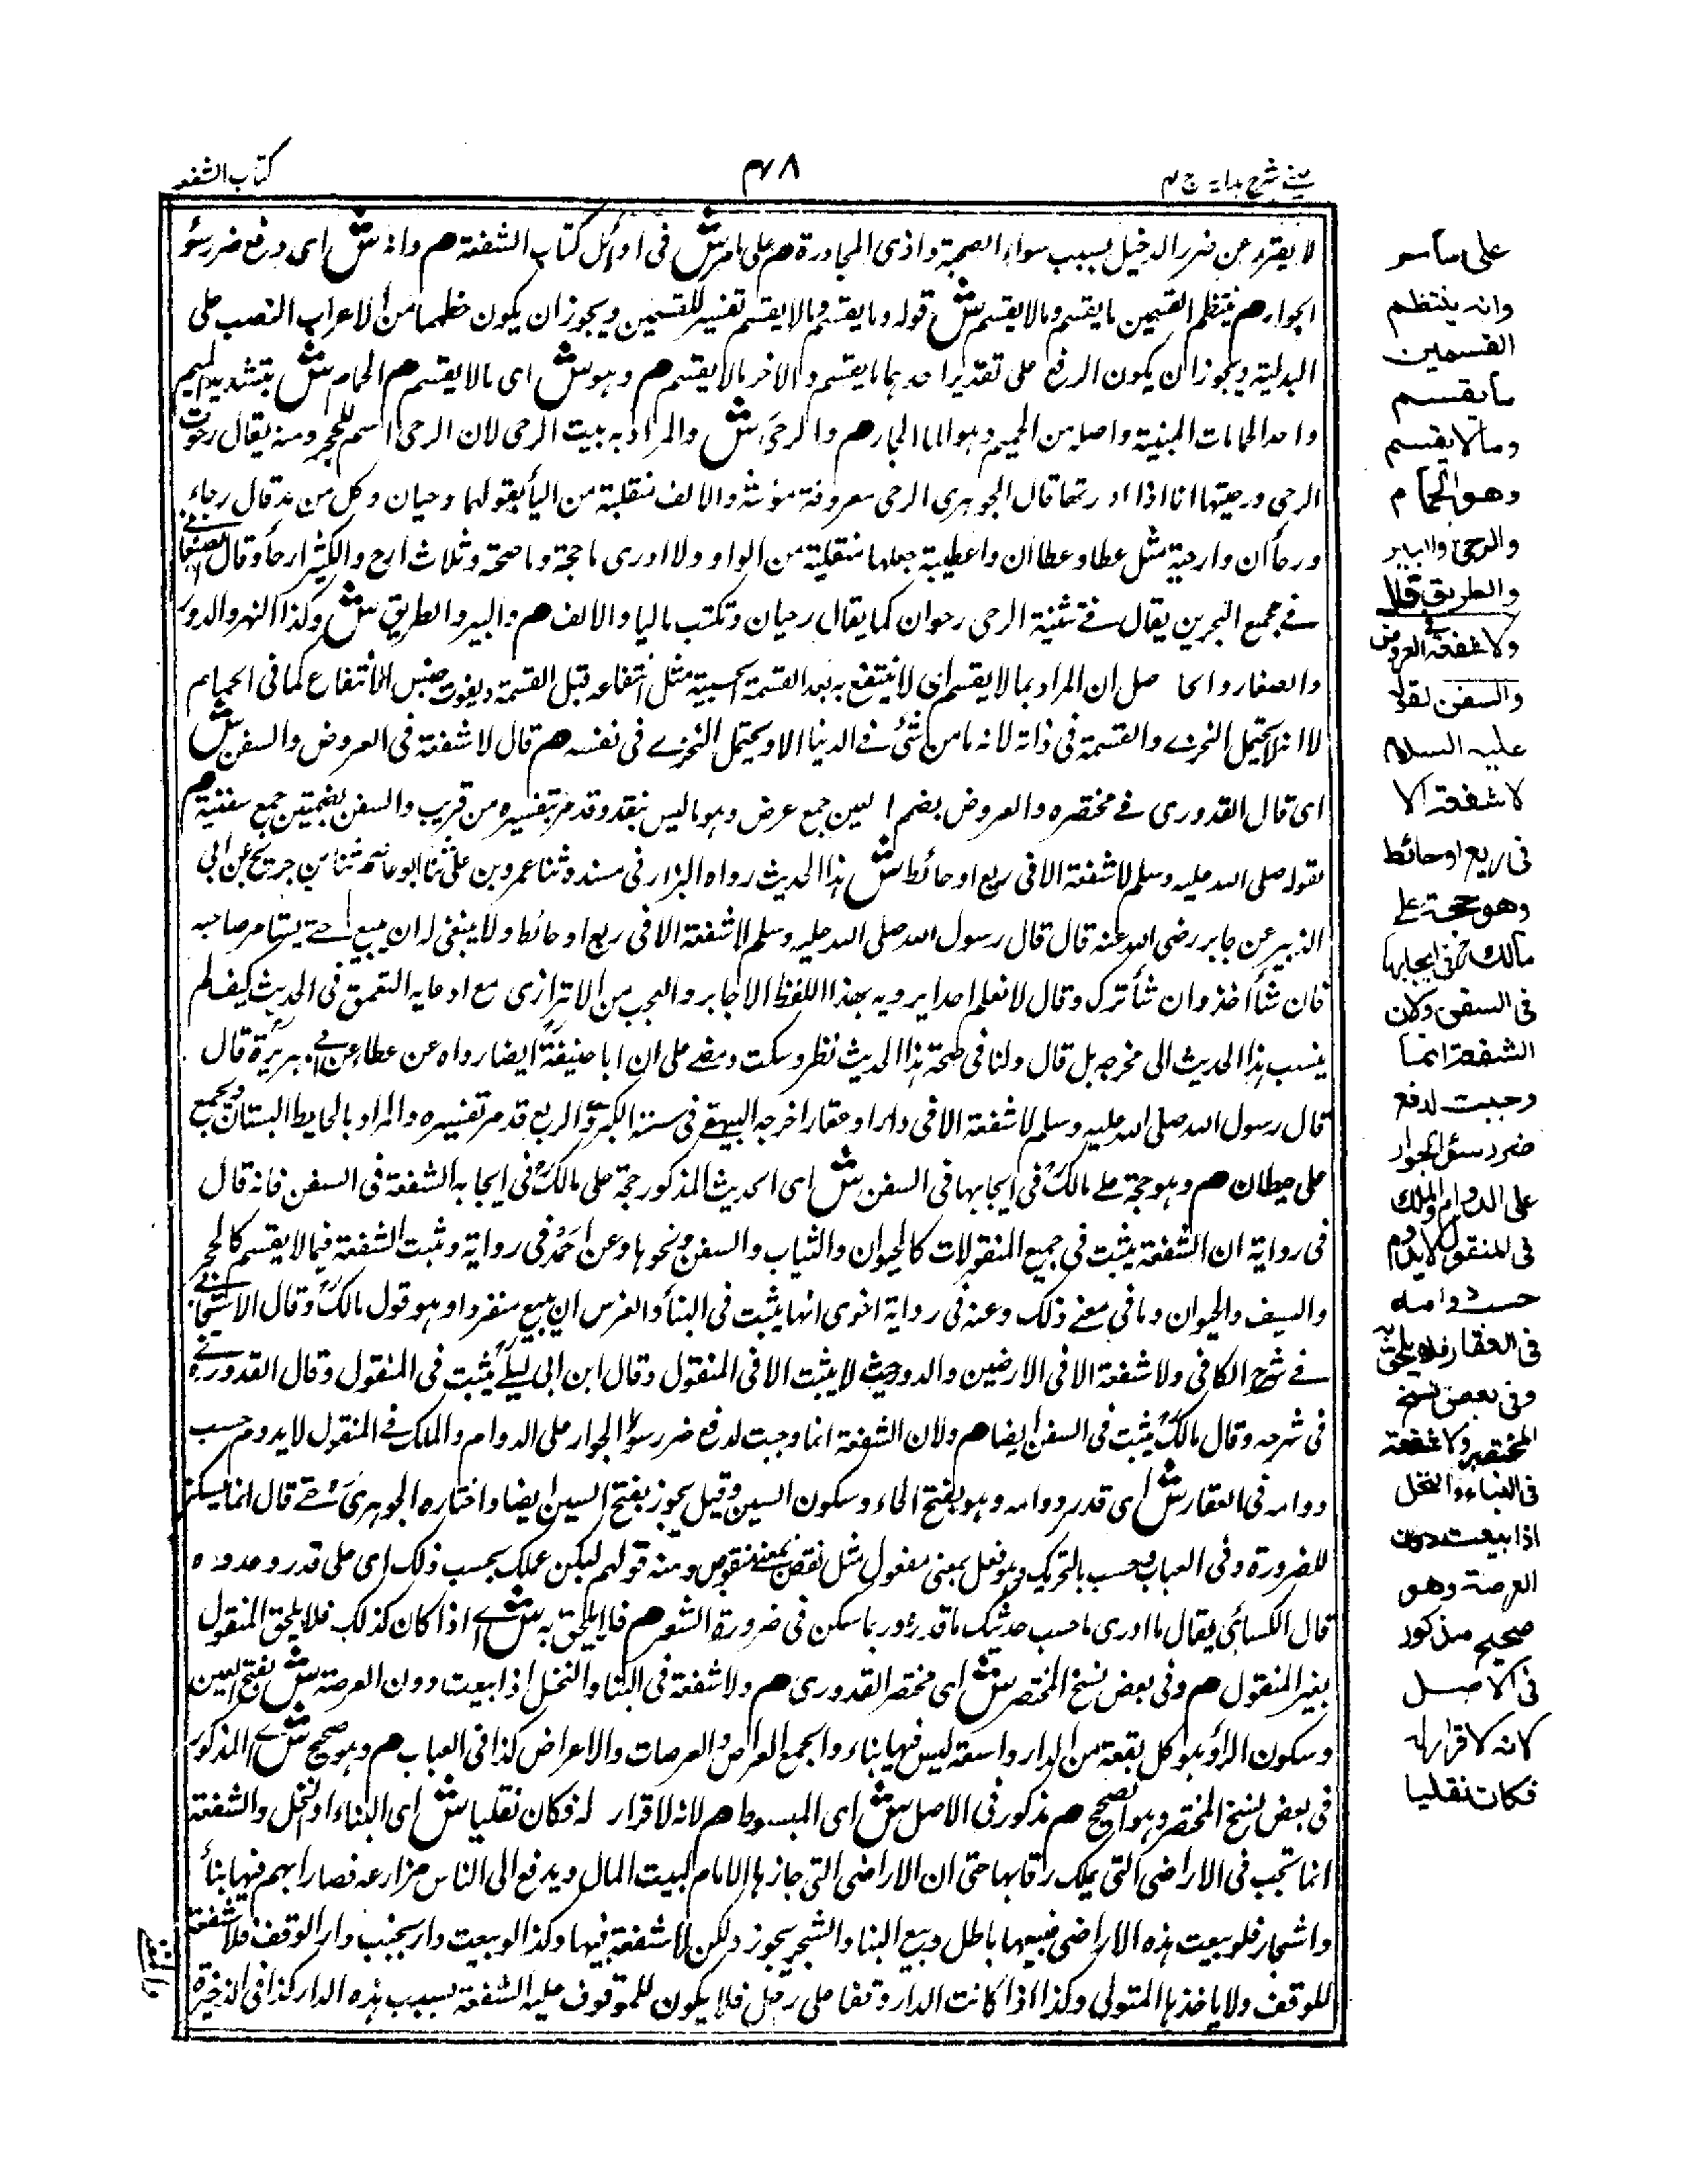 كتاب الشفعة
۴۰۸
عيني شرح هداية ج ۴
لا يقدر عن ضرر الدخيل بسبب سواء الصحبة واذى المجاورة هم على ما مر ش فى اوائل كتاب الشفعة هم وانه ش اى دفع ضرر سوء
الجوار هم ينتظم القسمين ما يقسم وما لا يقسم ش قوله وما يقسم وما لا يقسم تفسير للقسمين ويجوز ان يكون خطهما من الاعراب النصب على
البدلية ويجوز ان يكون الرفع على تقدير احدهما ما يقسم والاخر ما لا يقسم هم وهو ش اى ما لا يقسم هم الحمام ش بتشديد الميم
واحد الحمامات المبنية واصله من الحميم وهو الماء الحار هم والرحى ش والمراد به بيت الرحى لان الرحى اسم للحجر ومنه يقال رحوت
الرحى ورحيتها انا اذا ادرتها قال الجوهرى الرحى معروفة مؤنثة والالف منقلبة من اليأ بقولهما رحيان وكل من مد قال رحاء
ورحاأن وارحية مثل عطا وعطاان واعطية جعلها منقلبة من الواو ولا ادرى ما حجة وما صحته وثلاث ارح والكثير ارحأ وقال الصغانى
فى مجمع البحرين يقال فى تثنية الرحى رحوان كما يقال رحيان وتكتب باليا والالف هم والبير والطريق ش وكذا النهر والدور
والصغار والحاصل ان المراد بما لا يقسم اى لا ينتفع به بعد القسمة الحسية مثل انتفاعه قبل القسمة ويفوت جنس الانتفاع كما فى الحمام
لا انه لا يحتمل التجزى والقسمة فى ذاته لانه ما من شئ فى الدنيا الا ويحتمل التجزى فى نفسه هم قال لا شفعة فى العروض والسفن ش
اى قال القدورى فى مختصره والعروض بضم العين جمع عرض وهو ما ليس بنقد وقد مر تفسيره من قريب والسفن بضمتين جمع سفينة هم
بقوله صلى الله عليه وسلم لا شفعة الا فى ربع او حائط ش هذا الحديث رواه البزار فى مسنده ثنا عمرو بن على ثنا ابو عاصم ثنا بن جريج عن ابى
الزبير عن جابر رضى الله عنه قال قال رسول الله صلى الله عليه وسلم لا شفعة الا فى ربع او حائط ولا ينبغى له ان يبيع حتى يستامر صاحبه
فان شأ اخذ وان شأ ترك وقال لا نعلم احدا يرويه بهذا اللفظ الا جابر والعجب من الاترازى مع ادعايه التعمق فى الحديث كيف لم
ينسب هذا الحديث الى مخرجه بل قال ولنا فى صحة هذا الحديث نظر وسكت ومضى على ان ابا حنيفة ايضا رواه عن عطاء عن ابى هريرة قال
قال رسول الله صلى الله عليه وسلم لا شفعة الا فى دار او عقار اخرجه البيهقى فى سننه الكبرى والربع قد مر تفسيره والمراد بالحايط البستان ويجمع
على حيطان هم وهو حجة على مالك فى ايجابها فى السفن ش اى الحديث المذكور حجة على مالك فى ايجابه الشفعة فى السفن فانه قال
فى رواية ان الشفعة يثبت فى جميع المنقولات كالحيوان والثياب والسفن ونحوها وعن احمد فى رواية وثبت الشفعة فيما لا يقسم كالحجر
والسيف والحيوان وما فى معنى ذلك وعنه فى رواية اخرى انها يثبت فى البنأ والغرس ان بيع منفردا وهو قول مالك وقال الاسبيجابى
فى شرح الكافى ولا شفعة الا فى الارضين والدور حيث لا يثبت الا فى المنقول وقال ابن ابى ليلى يثبت فى المنقول وقال القدورى
فى شرحه وقال مالك يثبت فى السفن ايضا هم ولان الشفعة انما وجبت لدفع ضرر سوء الجوار على الدوام والملك فى المنقول لا يدوم حسب
دوامه فى العقار ش اى قدر دوامه وهو بفتح الحاء وسكون السين وقيل يجوز بفتح السين ايضا واختاره الجوهرى حتى قال انما يسكن
للضرورة وفى العباب وحسب بالتحريك وهو فعل بمعنى مفعول مثل نقص بمعنى منقوص ومنه قولهم ليكن عملك بحسب ذلك اى على قدره وعدده
قال الكسائى يقال ما ادرى ما حسب حديثك ما قدره وربما سكن فى ضرورة الشعر هم فلا يلحق به ش اى اذا كان كذلك فلا يلحق المنقول
بغير المنقول هم وفى بعض نسخ المختصر ش اى مختصر القدورى هم ولا شفعة فى البنا والنخل اذا بيعت دون العرصة ش بفتح العين
وسكون الرأ وهو كل بقعة من الدار واسعة ليس فيها بناء والجمع العراص والعرصات والاعراض كذا فى العباب هم وهو صحيح ش اى المذكور
فى بعض نسخ المختصر وهو الصحيح هم مذكور فى الاصل ش اى المبسوط هم لانه لا قرار له فكان نقليا ش اى البناء او النخل والشفعة
انما تجب فى الاراضى التى يملك رقابها حتى ان الاراضى التى حازها الامام لبيت المال ويدفع الى الناس مزارعة فصار لهم فيها بنأ
واشجار فلو بيعت هذه الاراضى فبيعها باطل وبيع البنا والشجر يجوز ولكن لا شفعة فيها وكذا لو بيعت دار بجنب دار الوقف فلا شفعة
للوقف ولا ياخذها المتولى وكذا اذا كانت الدار وقفا على رجل فلا يكون للموقوف عليه الشفعة بسبب هذه الدار كذا فى الذخيرة
على ما مر
وانه ينتظم
القسمين
ما يقسم
وما لا يقسم
وهو الحمام
والرحى والبير
والطريق قال
ولا شفعة فى العروض
والسفن لقوله
عليه السلام
لا شفعة الا
فى ربع او حائط
وهو حجة على
مالك فى ايجابها
فى السفن ولان
الشفعة انما
وجبت لدفع
ضرر سوء الجوار
على الدوام والملك
فى المنقول لا يدوم
حسب دوامه
فى العقار فلا يلحق به
وفى بعض نسخ
المختصر ولا شفعة
فى البناء والنخل
اذا بيعت دون
العرصة وهو
صحيح مذكور
فى الاصل
لانه لا قرار له
فكان نقليا